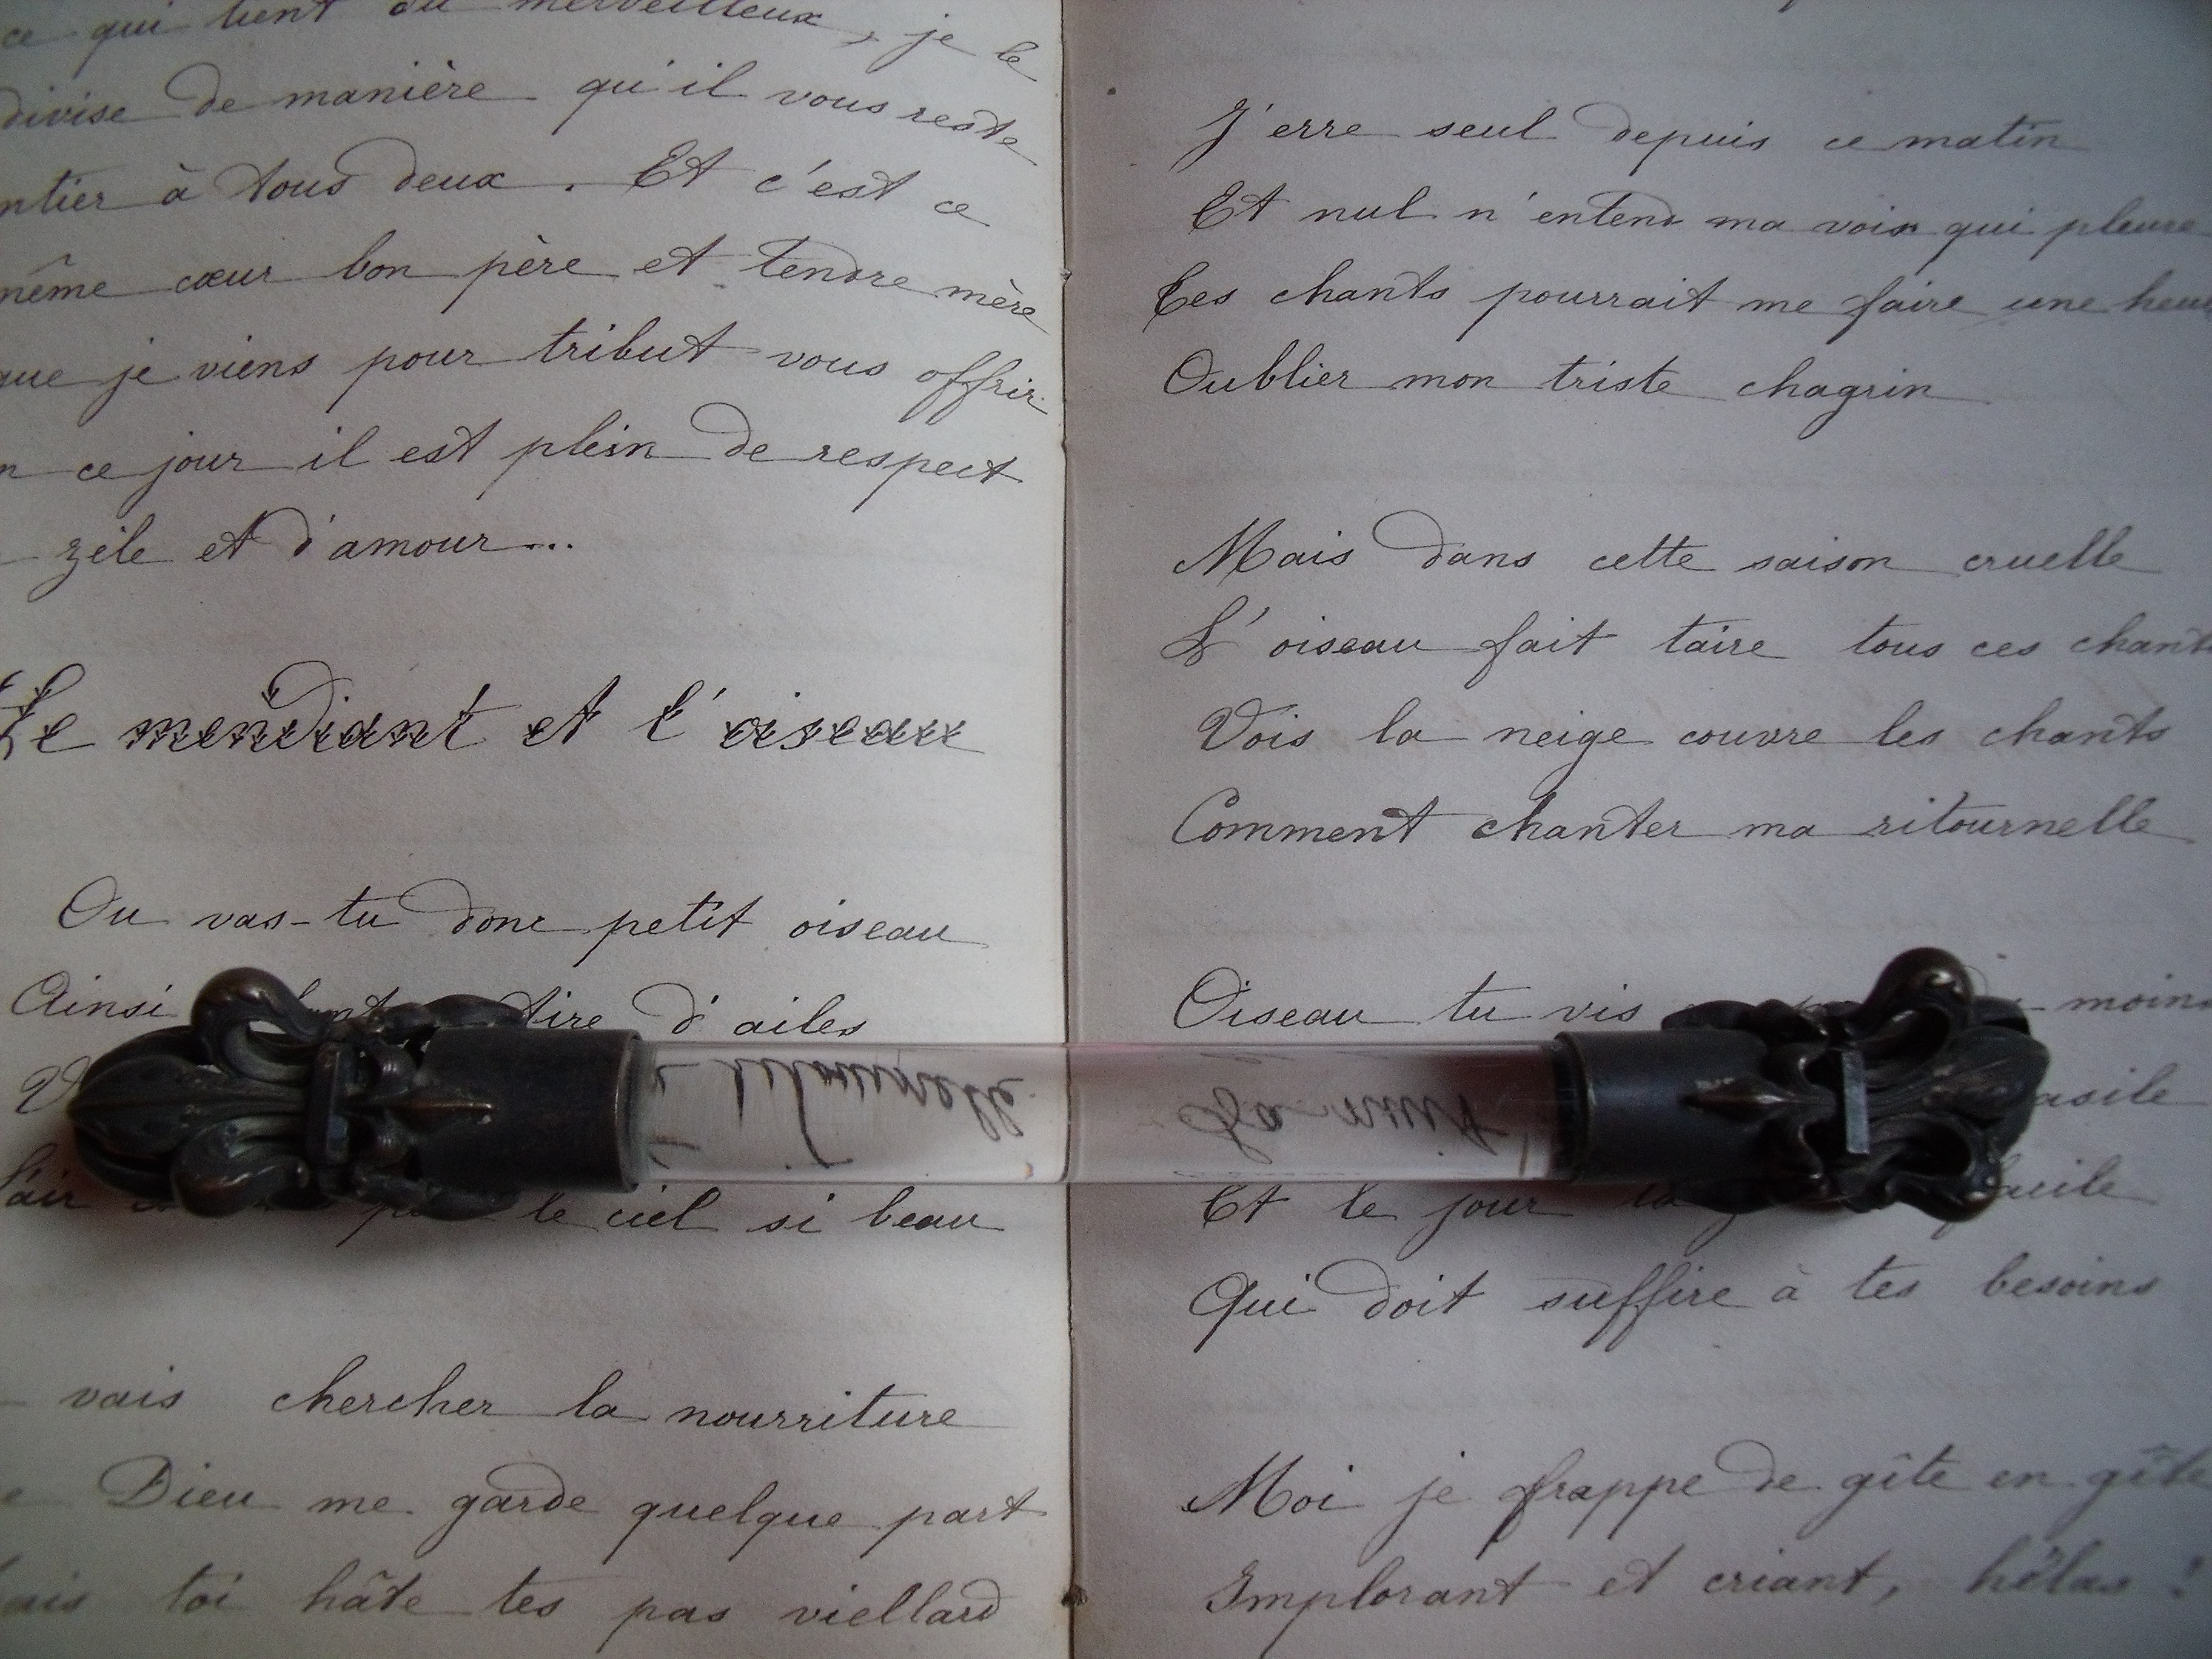 ce qui tient du merveilleux, je le
divise de manière qu'il vous reste
ntier à tous deux. Et c'est ce
même cœur bon père et tendre mère
que je viens pour tribut vous offrir
n ce jour il est plein de respect
zèle et d'amour...
Le mendiant et l'oiseau
Ou vas-tu donc petit oiseau
Ainsi tire d'ailes
ritournelle
l'air le ciel si beau
vais chercher la nourriture
e Dieu me garde quelque part
ais toi hâte tes pas viellard
J'erre seul depuis ce matin
Et nul n'entend ma voix qui pleure
Ces chants pourrait me faire une heu
Oublier mon triste chagrin
Mais dans cette saison cruelle
L'oiseau fait taire tous ces chants
Vois la neige couvre les chants
Comment chanter ma ritournelle
Oiseau tu vis moins
La nuit asile
Et le jour
Qui doit suffire à tes besoins
Moi je frappe de gîte en gîte
Implorant et criant, hélas!